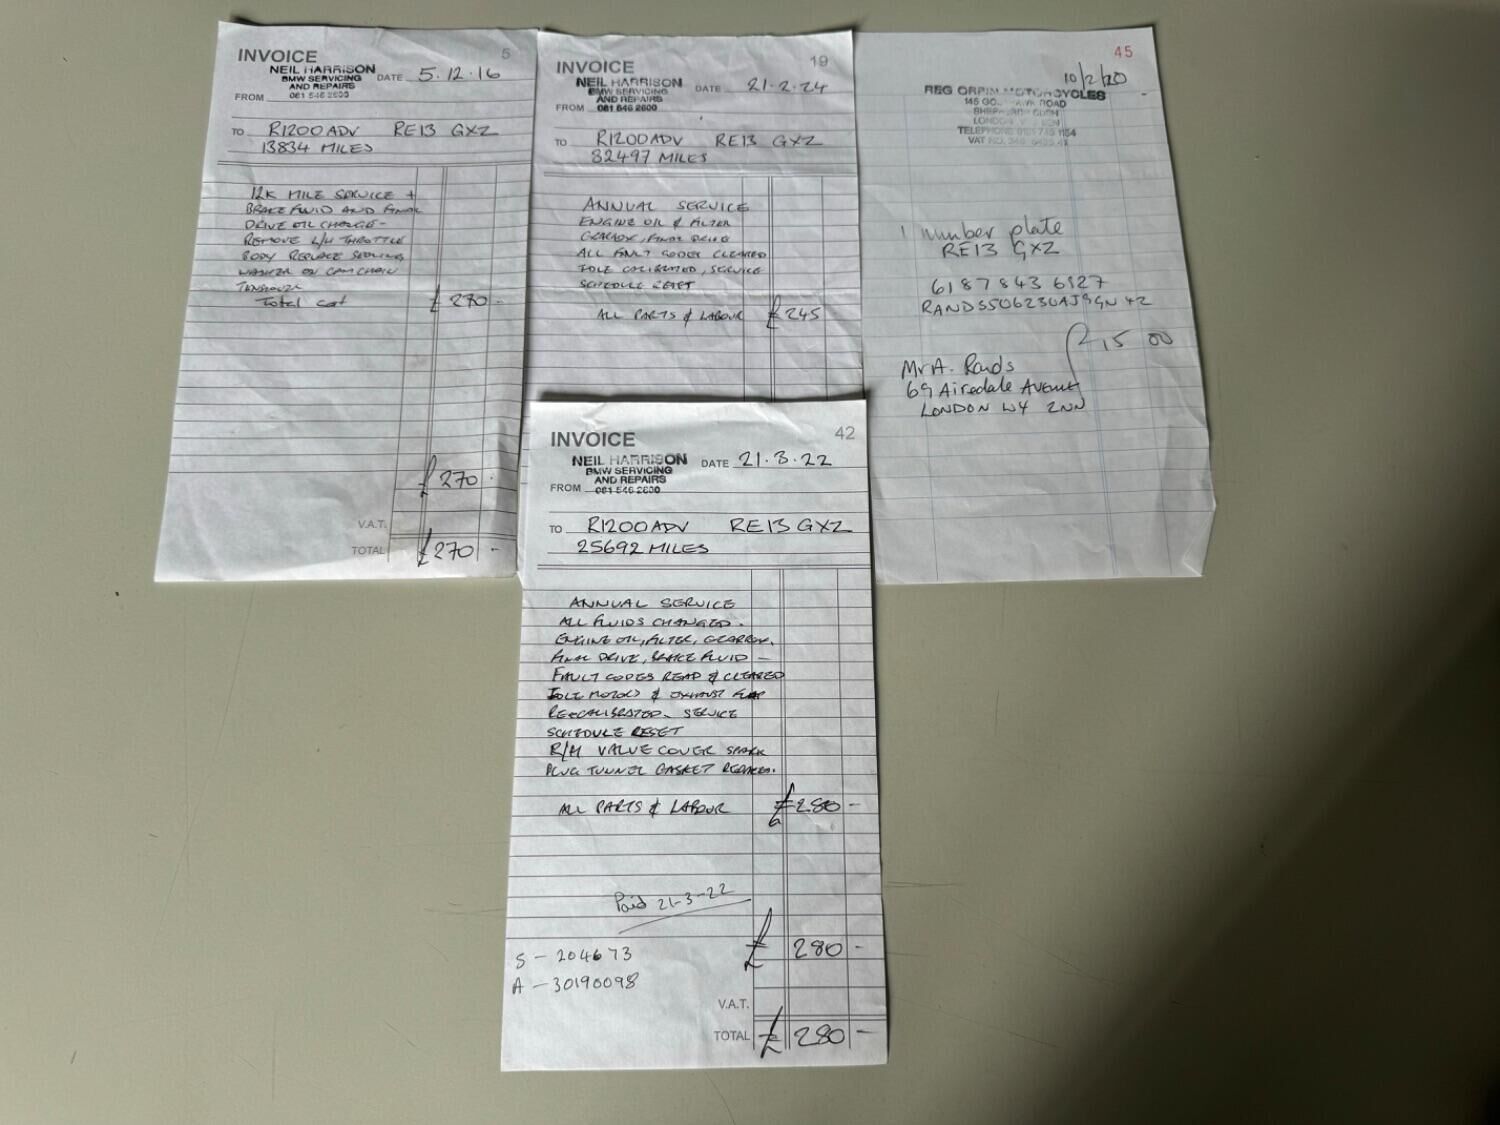 INVOICE
5
NEIL HARRISON
BMW SERVICING
AND REPAIRS
081 546 2600
DATE 5.12.16
FROM
TO R1200ADV RE13 GXZ
13834 MILES
12K MILE SERVICE +
BRAKE FLUID AND FINAL
DRIVE OIL CHANGE -
REMOVE L/H THROTTLE
BODY REPLACE SEALING
WASHER ON CAM CHAIN
TENSIONER
Total cost £270 -
£270 -
V.A.T.
TOTAL £270 -
INVOICE
19
NEIL HARRISON
BMW SERVICING
AND REPAIRS
081 546 2600
DATE 21.2.24
FROM
TO R1200ADV RE13 GXZ
32497 MILES
ANNUAL SERVICE
ENGINE OIL & FILTER
GEARBOX, FINAL DRIVE
ALL FAULT CODES CLEARED
IDLE CALIBRATED, SERVICE
SCHEDULE RESET
ALL PARTS & LABOUR £245
45
10/2/20
REG ORPIN MOTORCYCLES
ROAD
LONDON
TELEPHONE
VAT NO.
1 number plate
RE13 GXZ
6187843 6127
£15 00
Mr A. Rands
69 Airedale Avenue
LONDON W4 2NN
INVOICE
42
NEIL HARRISON
BMW SERVICING
AND REPAIRS
081 546 2600
DATE 21.3.22
FROM
TO R1200ADV RE13 GXZ
25692 MILES
ANNUAL SERVICE
ALL FLUIDS CHANGED.
ENGINE OIL, FILTER, GEARBOX,
FINAL DRIVE, BRAKE FLUID -
FAULT CODES READ & CLEARED
IDLE MOTORS & EXHAUST FLAP
RE-CALIBRATED. SERVICE
SCHEDULE RESET
R/H VALVE COVER SPARK
PLUG TUNNEL GASKET
ALL PARTS & LABOUR £280 -
Paid 21-3-22
£280 -
S - 204673
A - 30190098
V.A.T.
TOTAL £280 -